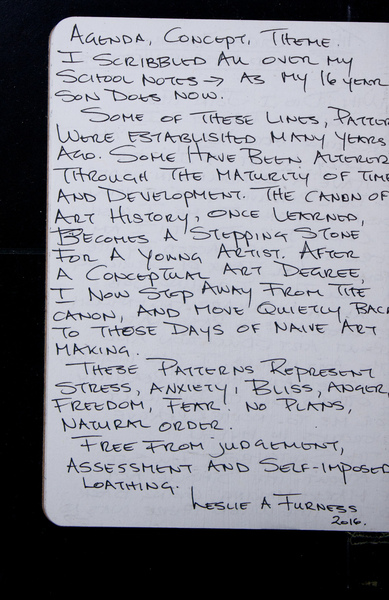 AGENDA, CONCEPT, THEME.
I SCRIBBLED ALL OVER MY
SCHOOL NOTES → AS MY 16 YEAR
SON DOES NOW.
SOME OF THESE LINES, PATTER
WERE ESTABLISHED MANY YEARS
AGO. SOME HAVE BEEN ALTERED
THROUGH THE MATURITY OF TIME
AND DEVELOPMENT. THE CANON OF
ART HISTORY, ONCE LEARNED,
BECOMES A STEPPING STONE
FOR A YOUNG ARTIST. AFTER
A CONCEPTUAL ART DEGREE,
I NOW STEP AWAY FROM THE
CANON, AND MOVE QUIETLY BACK
TO THOSE DAYS OF NAIVE ART
MAKING.
THESE PATTERNS REPRESENT
STRESS, ANXIETY, BLISS, ANGER,
FREEDOM, FEAR. NO PLANS,
NATURAL ORDER.
FREE FROM JUDGEMENT,
ASSESSMENT AND SELF-IMPOSED
LOATHING.
LESLIE A FURNESS
2016.